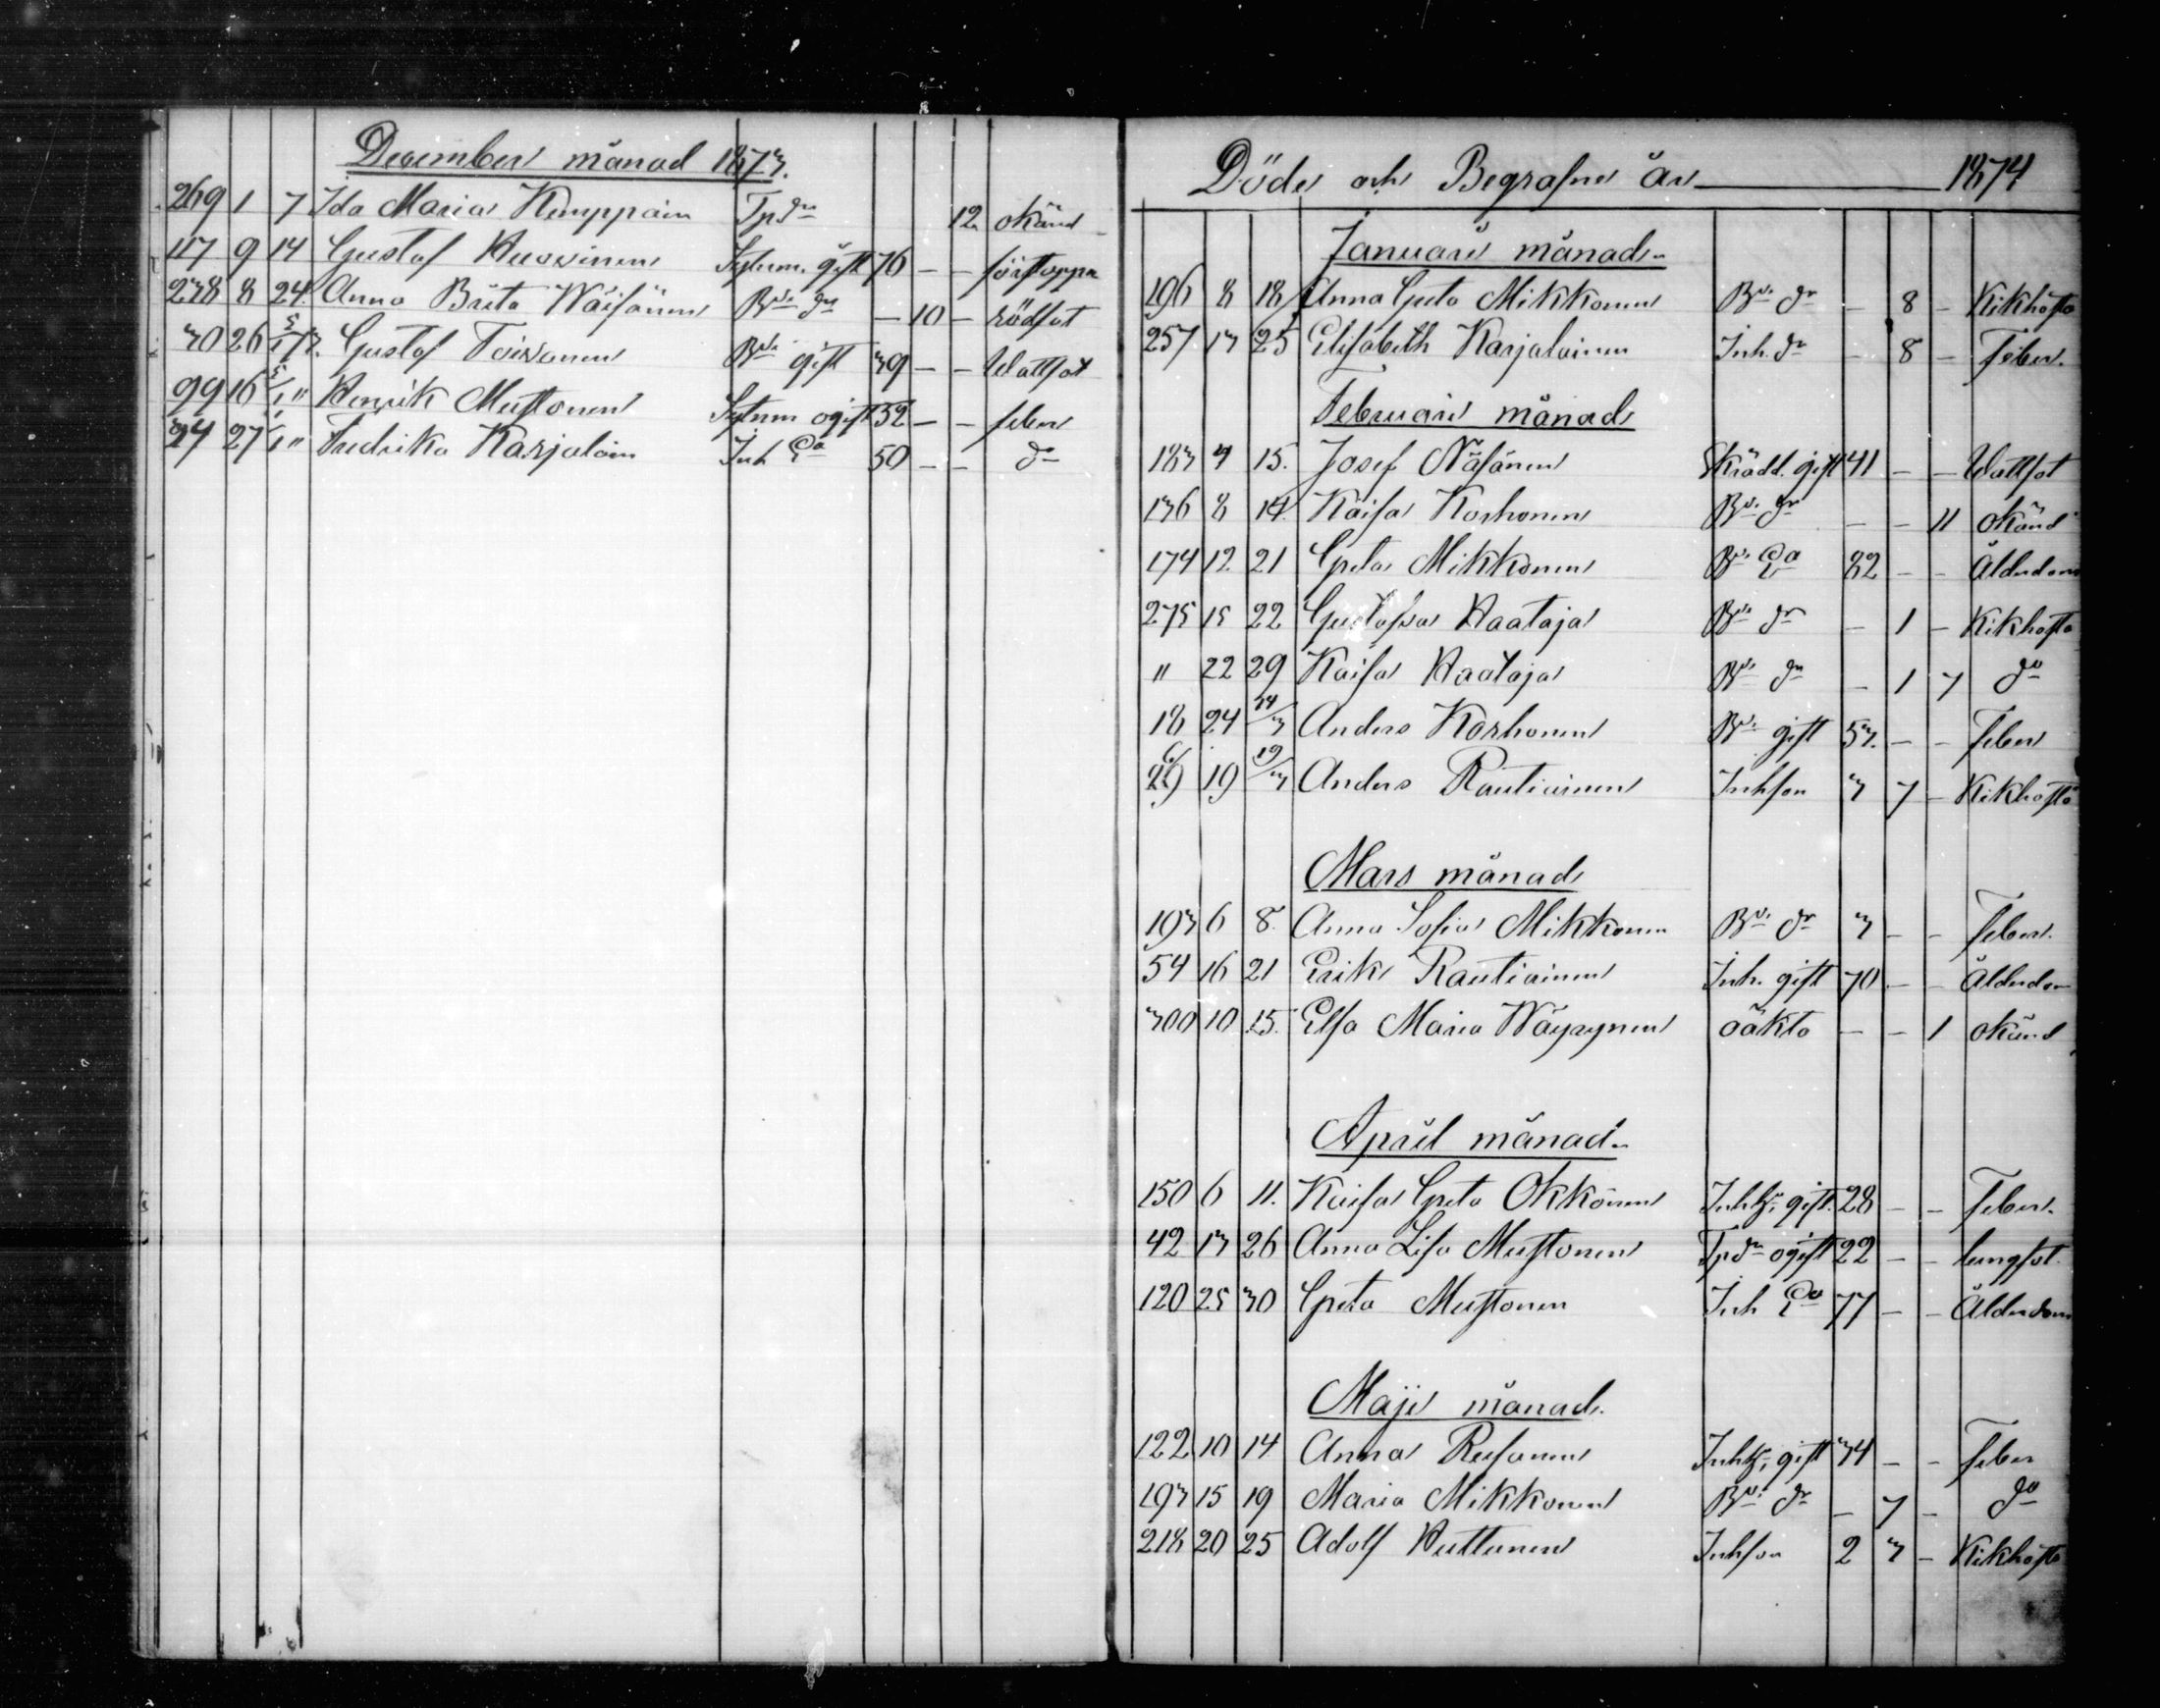 December månad 1873.
269 1 7 Ida Maria Kemppain Tpdr 12 okänd
117 9 14 Gustaf Huovinen gift 76 — — förstoppn
238 8 24 Anna Brita Wäisänen Bde dr — 10 — rödsot
30 26 5/1 73. Gustaf Toivonen Bde gift 39 — — Wattsot
99 16 5/1 " Henrik Mustonen ogift 52 — — feber
34 27 1/1 " Fredrika Karjalain Inh Ea 50 — — do
Döde och Begrafne år 1874
Januari månad
196 8 18 Anna Greta Mikkonen Bde dr — 8 — Kikhosta
257 13 25 Elisabeth Karjalainen Inh. dr — 8 — Feber.
Februari månad
183 4 15. Josef Näsänen Skrädd. gift 41 — — Wattsot
136 8 14. Kaisa Korhonen Bde dr — — 11 okänd
174 12 21 Greta Mikkonen Bde Ea 82 — — Ålderdom
275 15 22 Gustafva Haataja Bde dr — 1 — Kikhosta
" 22 29 Kaisa Haataja Bde dr — 1 7 do
18 24 14/3 Anders Korhonen Bde gift 53. — — Feber
29 19 19/3 Anders Rautiainen Inhson 3 7 — Kikhosta
Mars månad
193 6 8. Anna Sofia Mikkonen Bde dr 3 — — Feber.
54 16 21 Erik Rautiainen Inh. gift 70 — — Ålderdom
300 10 15. Elsa Maria Wäyrynen oäkta — — 1 okänd
April månad
150 6 11. Kaisa Greta Okkonen Inhh, gift. 28 — — Feber.
42 13 26 Anna Lisa Mustonen Tpdr ogift 22 — — lungsot.
120 25 30 Greta Mustonen Inh Ea 77 — — Ålderdom
Maji månad.
122 10 14 Anna Rusanen Inhh, gift 34 — — feber
193 15 19 Maria Mikkonen Bde dr — 7 — do
218 20 25 Adolf Huttunen Inhson 2 3 — Kikhosta